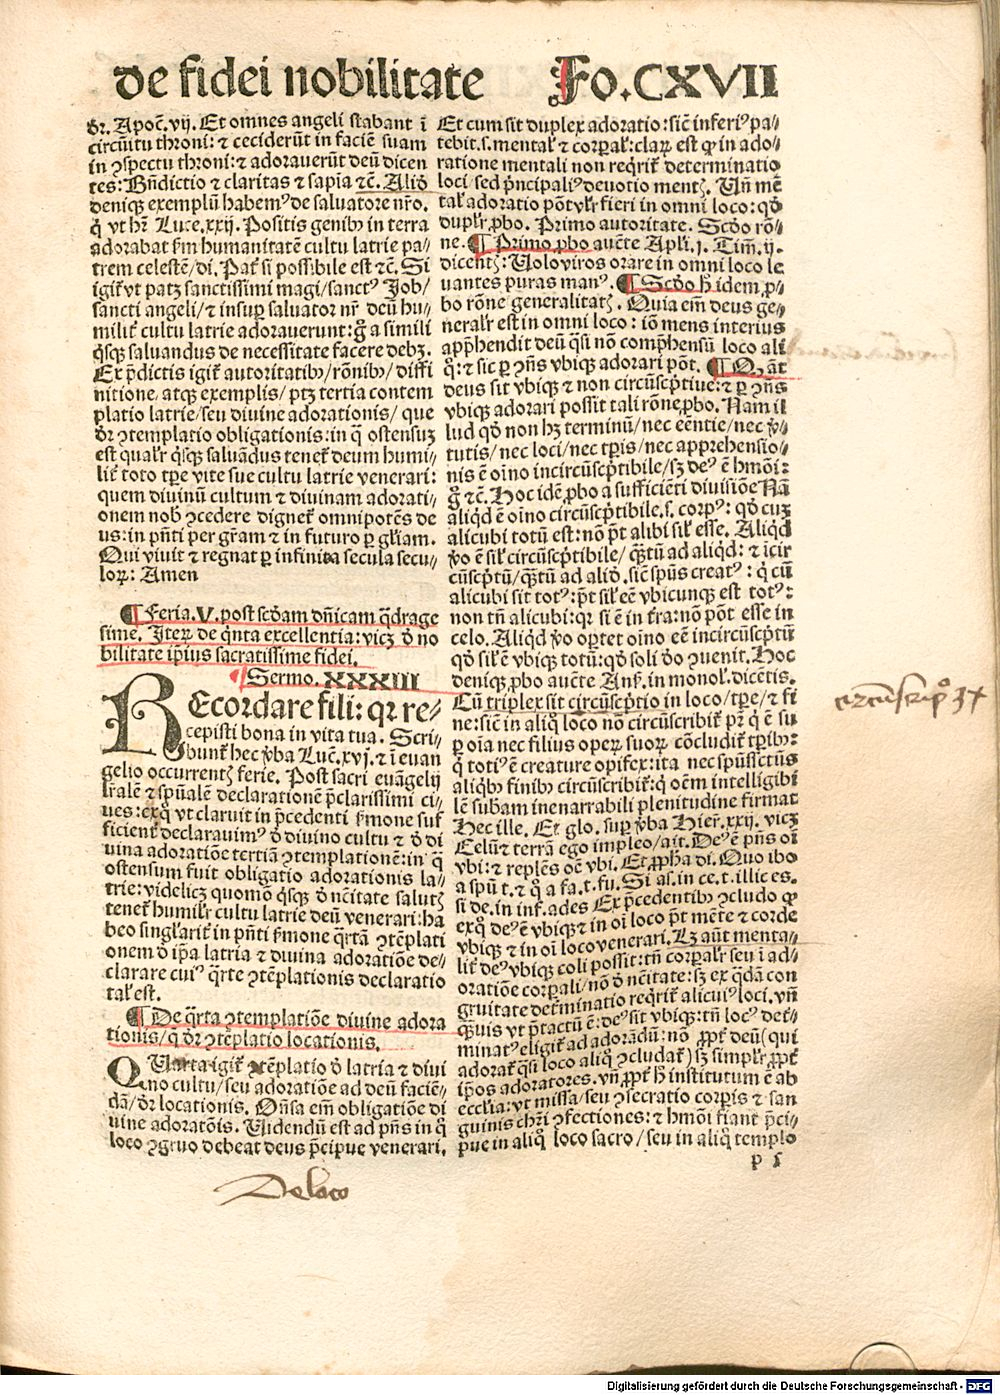 de fidei nobilitate Fo.CXVII
dr. Apoc̄. vij. Et omnes angeli stabant ī
circūitu throni: ⁊ ceciderūt in faciē suam
in ꝯspectu throni: ⁊ adorauerūt deū dicen
tes: Bn̄dictio ⁊ claritas ⁊ sapīa ⁊c̄. Aliđ
denique exemplū habem⁹ de saluatore nr̄o.
q̇ vt hr̄ Luce. xxij. Positis genibꝰ in terra
adorabat ẜm humanitatē cultu latrie pa⸗
trem celestē/ di. Pat̄ si possibile est ⁊c̄. Si
igit̄ vt patꝫ sanctissimi magi/ sanct⁹ Job/
sancti angeli/ ⁊ insuꝑ saluator nr̄ deū hu⸗
milit̄ cultu latrie adorauerunt: g̊ a simili
q̇sqꝫ saluandus de necessitate facere debꝫ.
Ex p̄dictis igit̄ autoritatibꝰ/ rōnibꝰ/ diffi
nitione/ atqꝫ exemplis/ ptꝫ tertia contem
platio latrie/ seu diuine adorationis/ que
dr̄ ꝯtemplatio obligationis: in q̄ ostensuꝫ
est qualr̄ q̇sqꝫ saluādus tenet̄ deum humi⸗
lit̄ toto tꝑe vite sue cultu latrie venerari:
quem diuinū cultum ⁊ diuinam adorati⸗
onem nob̄ ꝯcedere dignet̄ omnipotēs de
us: in pn̄ti per gr̄am ⁊ in futuro ꝑ gl̄iam.
Qui viuit ⁊ regnat ꝑ infinita secula secu⸗
loꝝ: Amen
¶ Feria. V. post scđam dn̄icam q̄drage
sime. Iteꝝ de q̇nta excellentia: vicꝫ đ no
bilitate ip̄ius sacratissime fidei.
Sermo. XXXIII
REcordare fili: qr re⸗
cepisti bona in vita tua. Scri⸗
bunt̄ hec v̄ba Luc̄. xvj. ⁊ ī euan
gelio occurrentꝭ ferie. Post sacri euāgelij
lr̄alē ⁊ spūalē declarationē p̄clarissimi ci⸗
ues: ex q̊ vt claruit in p̄cedenti ẜmone suf
ficient̄ declarauim⁹ đ diuino cultu ⁊ đ di
uina adoratiōe tertiā ꝯtemplationē: in q̄
ostensum fuit obligatio adorationis la⸗
trie: videlicꝫ quomō q̇sqꝫ đ nc̄itate salutꝭ
tenet̄ humilr̄ cultu latrie deū venerari: ha
beo singlarit̄ in pn̄ti ẜmone q̄rtā ꝯtēplati
onem đ ip̄a latria ⁊ diuina adoratiōe de⸗
clarare cui⁹ q̄rte ꝯtemplationis declaratio
tal̄ est.
¶ De q̄rta ꝯtemplatiōe diuine adora
tionis/ q̄ dr̄ ꝯtēplatio locationis.
QUarta igit̄ ꝯtēplatio đ latria ⁊ diui
no cultu/ seu adoratiōe ad deū faciē⸗
dā/ dr̄ locationis. On̄sa em̄ obligatiōe di
uine adoratōis. Uidendū est ad pn̄s in q̊
loco ꝯgruo debeat deus p̄cipue venerari.
De loco
Et cum sit duplex adoratio: sic̄ inferi⁹ pa⸗
tebit. s. mental̄ ⁊ corꝑal̄: claꝝ est ꝙ in ado⸗
ratione mentali non req̇rit̄ determinatio
loci/ sed p̄ncipali⁹ deuotio mentꝭ. Un̄ mē
tal̄ adoratio pōt ylr̄ fieri in omni loco: qđ
duplr̄ ꝓbo. Primo autoritate. Scđo rō⸗
ne. ¶ Primo ꝓbo auc̄te Apl̄i. j. Tim̄. ij.
dicentꝭ: Uolo viros orare in omni loco le
uantes puras man⁹. ¶ Scđo h̄ idem ꝓ⸗
bo rōne generalitatꝭ. Quia em̄ deus ge⸗
neralr̄ est in omni loco: iō mens interius
app̄hendit deū q̄si nō comp̄hensū loco ali
q̊: ⁊ sic ꝑ ꝯn̄s vbiqꝫ adorari pōt. ¶ Ꝙ aūt
deus sit vbiqꝫ ⁊ non circūsc̄ptiue: ⁊ ꝑ ꝯn̄s
vbiqꝫ adorari possit tali rōne ꝓbo. Nam il
lud qđ non hꝫ terminū/ nec eēntie/ nec v̄⸗
tutis/ nec loci/ nec tꝑis/ nec apprehensio⸗
nis ē oīno incircūscꝑtibile/ sꝫ de⁹ ē hmōi:
g̊ ⁊c̄. Hoc idē ꝓbo a sufficiēti diuisiōe Nā
aliq̇d ē oīno circūscꝑtibile. s. corp⁹: qđ cuꝫ
alicubi totū est: nō p̄t alibi sil̄ esse. Aliq̇d
v̊o ē sil̄ circūscꝑtibile/ q̄ꝫtū ad aliq̇d: ⁊ īcir
cūscꝑtū/ q̄ꝫtū ad aliđ. sic̄ spūs creat⁹: q̇ cū
alicubi sit tot⁹: p̄t sil̄ eē vbicunqꝫ est tot⁹:
non tn̄ alicubi: qr si ē in t̄ra: nō pōt esse in
celo. Aliq̇d v̊o oꝑtet oīno eē incircūscꝑtū
qđ sil̄ ē vbiqꝫ totū: qđ soli đo ꝯuenit. Hoc
deniqꝫ ꝓbo auc̄te Anẜ. in monol̄. dicētis.
Cū triplex sit circūscꝑtio in loco/ tꝑe/ ⁊ fi
ne: sic̄ in aliq̊ loco nō circūscribit̄ pr̄ q̇ ē su
ꝑ oīa nec filius oꝑeꝝ suoꝝ cōcludit̄ tꝑibꝰ:
q̇ toti⁹ ē creature opifex: ita nec spūssctūs
aliq̇bꝰ finibꝰ circūscribit̄: q̇ oēm intelligibi
lē subam inenarrabili plenitudine firmat
Hec ille. Et glo. suꝑ v̄ba Hier̄. xxij. vicꝫ
Celū ⁊ terrā ego impleo/ ait. De⁹ ē pn̄s oī
vbi: ⁊ replēs oē vbi. Et ꝓpha di. Quo ibo
a spū t. ⁊ q̊ a fa. t. fu. Si as. in ce. t. illic es.
si de. in inf. ades Ex p̄cedentibꝰ ꝯcludo ꝙ
ex q̊ de⁹ ē vbiqꝫ ⁊ in oī loco p̄t mēte ⁊ corde
vbiqꝫ ⁊ in oī loco venerari. Lꝫ aūt menta⸗
lit̄ de⁹ vbiqꝫ coli possit: tn̄ corꝑalr̄ seu ī ad⸗
oratiōe corꝑali/ nō đ nc̄itate: sꝫ ex q̄dā con
gruitate det̄minatio req̇rit̄ alicui⁹ loci. vn̄
q̄ꝫuis vt p̄tactū ē: de⁹ sit vbiqꝫ: tn̄ loc⁹ det̄⸗
minat⁹ eligit̄ ad adorādū: nō ꝓpt̄ deū (qui
adorat̄ q̄si loco aliq̊ ꝯcludat̄) sꝫ simplr̄ ꝓpt̄
ip̄os adoratores. vn̄ ꝓpt̄ h̄ institutum ē ab
ecclīa: vt missa/ seu ꝯsecratio corꝑis ⁊ san
guinis chr̄i ꝯfectiones: ⁊ hmōi fiant p̄ci⸗
pue in aliq̊ loco sacro/ seu in aliq̊ templo
p 5
Digitalisierung gefördert durch die Deutsche Forschungsgemeinschaft - DFG